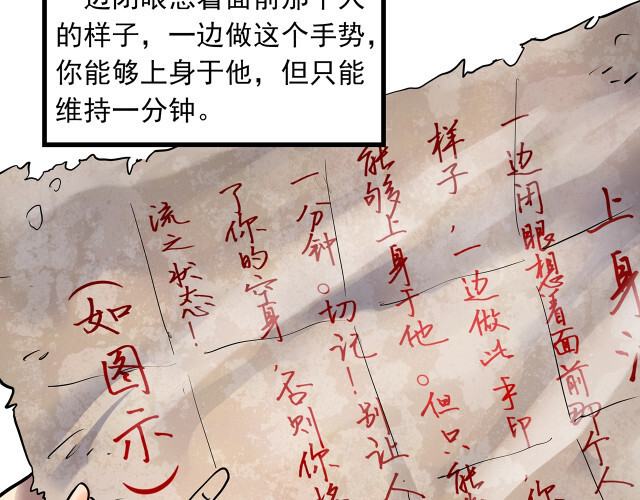 一边闭眼想着面前那个人
的样子，一边做这个手势，
你能够上身于他，但只能
维持一分钟。
上身
一边闭眼想着面前那个人
样子，一边做此手印 你
能够上身于他。但只能
一分钟。切记！别让人
了你的空身，否则你将
流之状态！
（如图示）